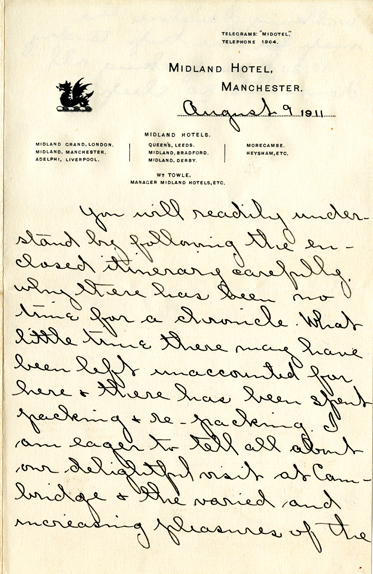 TELEGRAMS: "MIDOTEL."
TELEPHONE 1904.
MIDLAND HOTEL,
MANCHESTER.
August 9 1911
MIDLAND HOTELS.
MIDLAND GRAND, LONDON.
MIDLAND, MANCHESTER.
ADELPHI, LIVERPOOL.
QUEEN'S, LEEDS.
MIDLAND, BRADFORD.
MIDLAND, DERBY.
MORECAMBE.
HEYSHAM, ETC.
Wm TOWLE.
MANAGER MIDLAND HOTELS, ETC.
You will readily under-
stand by following the en-
closed itinerary carefully.
why there has been no
time for a chronicle. What
little time there may have
been left unaccounted for
here & there has been spent
packing & re-packing. I
am eager to tell all about
our delightful visit at Cam-
bridge & the varied and
increasing pleasures of the